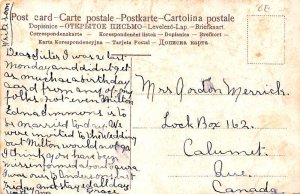 Post Card – Carte postale – Postkarte – Cartolina postale
Dopisnice – ОТКРЫТОЕ ПИСЬМО – Levelező-Lap – Briefkaart
Correspondenzkarte – Korespondenční lístek – Dopisnica – Brefkort
Karta Korespondencyjna – Дописна карта
Dear Sister I was
Monday and didn't get
as much as a birthday
card from any of my
folks. not even Milton
Edna Simmons is to
be married to day. We
were invited to the wedding
but Milton would not go
I think you have been
missing
Friday and stay all day
Mrs Gordon Merrick.
Lock Box 162.
Calumet.
Que.
Canada.